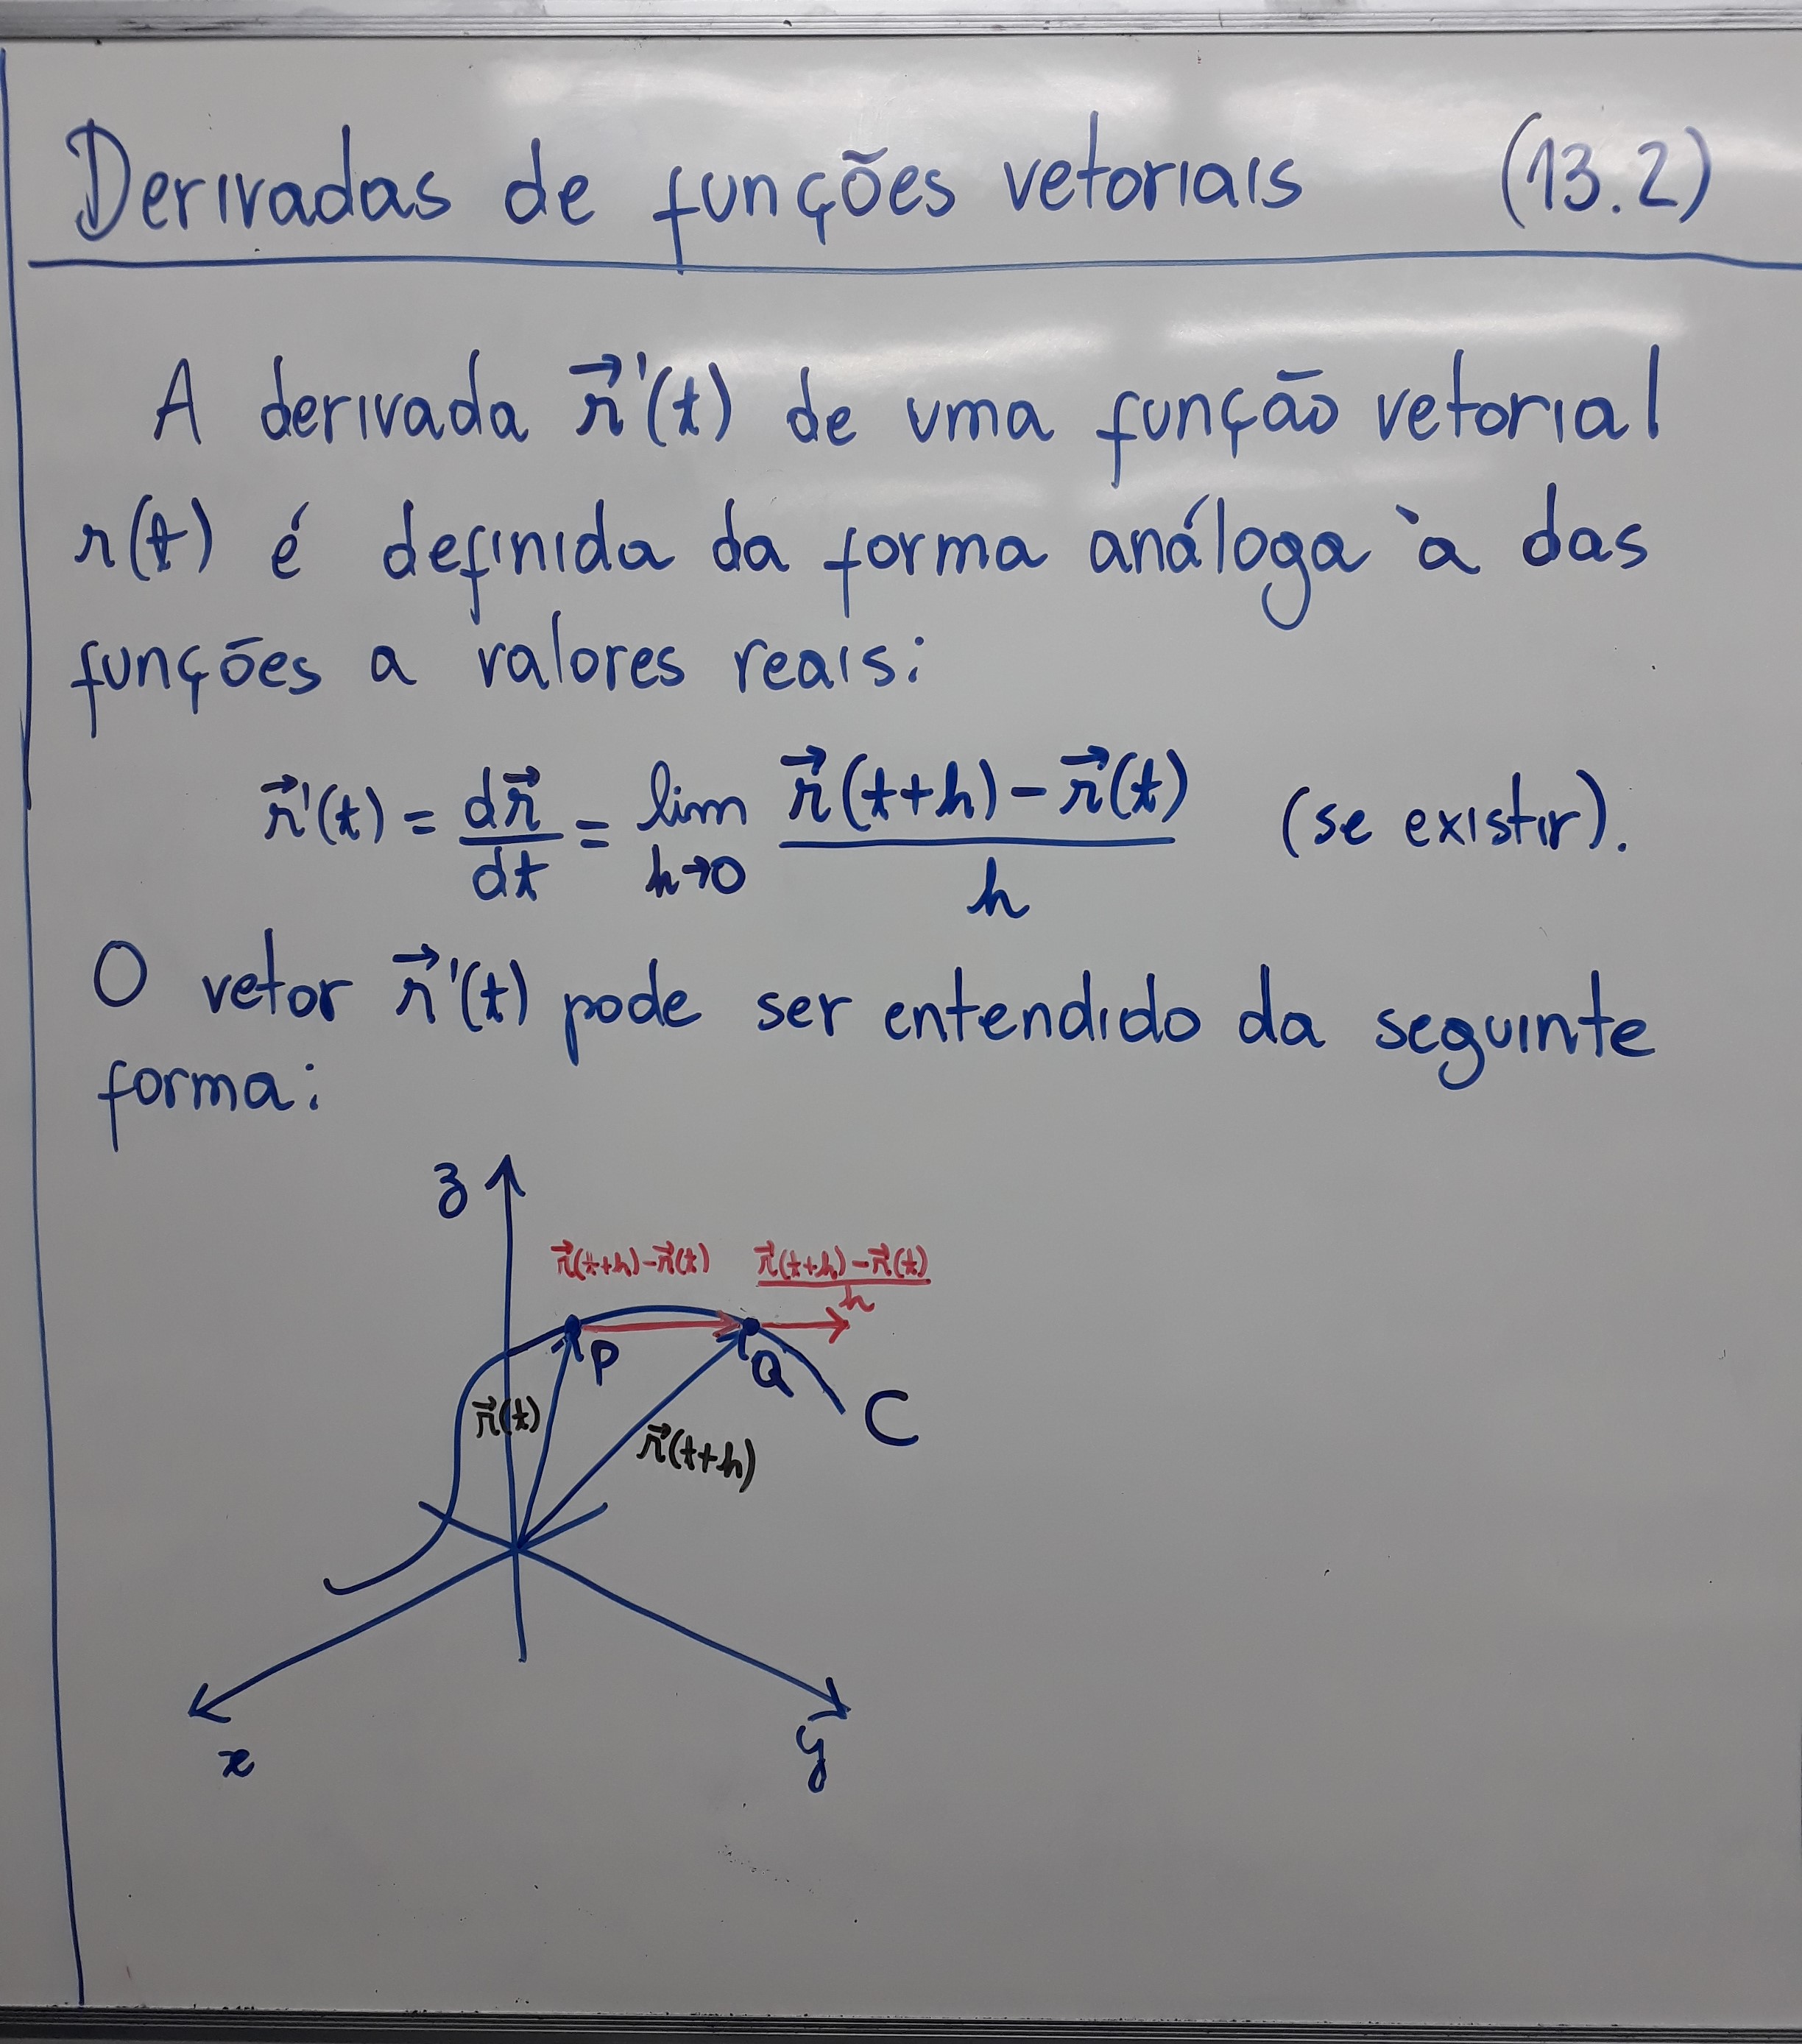 Derivadas de funções vetoriais (13.2)
A derivada r⃗'(t) de uma função vetorial
r(t) é definida da forma análoga à das
funções a valores reais:
r⃗'(t) = dr⃗/dt = lim h→0 (r⃗(t+h) - r⃗(t))/h (se existir).
O vetor r⃗'(t) pode ser entendido da seguinte
forma:
z
r⃗(t+h)-r⃗(t) (r⃗(t+h)-r⃗(t))/h
P Q
r⃗(t) C
r⃗(t+h)
x y